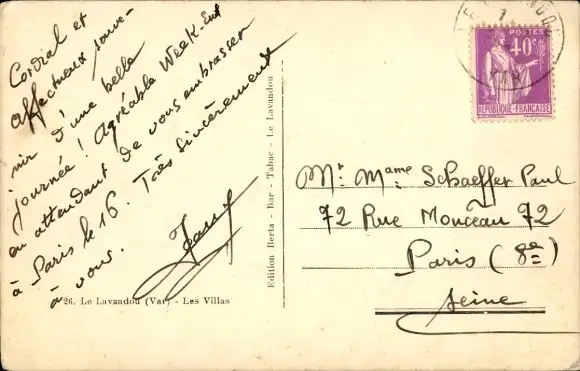 Cordial et
affectueux souve-
nir d'une belle
journée ! Agréable Week-End
en attendant de vous embrasser
à Paris le 16. Très sincèrement
à vous.
26. Le Lavandou (Var) - Les Villas
Edition Berta - Bar - Tabac - Le Lavandou
POSTES
40c
REPUBLIQUE-FRANÇAISE
Mr. Mame Schaeffer Paul
72 Rue Monceau 72
Paris (8e)
Seine